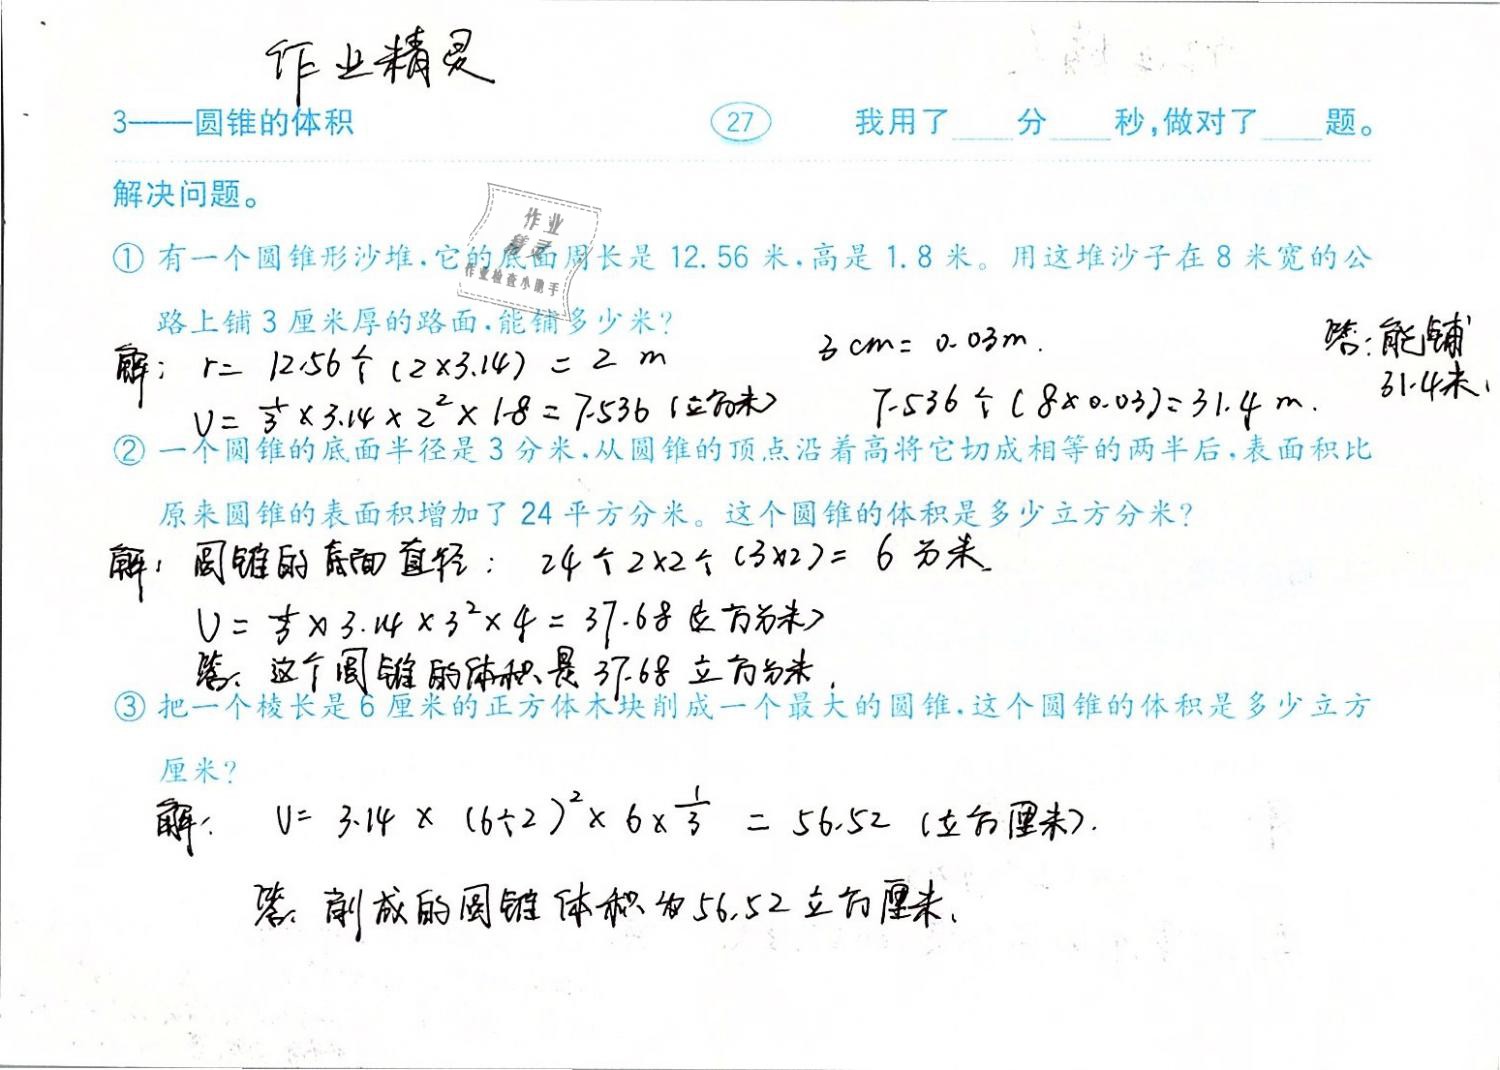 作业精灵
3——圆锥的体积 27 我用了____分____秒,做对了____题。
解决问题。
作业
精灵
作业检查小助手
① 有一个圆锥形沙堆,它的底面周长是 12.56 米,高是 1.8 米。用这堆沙子在 8 米宽的公
路上铺 3 厘米厚的路面,能铺多少米?
解: r= 12.56÷(2×3.14) = 2 m
3 cm = 0.03m.
答:能铺
31.4米.
V= 1/3 × 3.14 × 2² × 1.8 = 7.536 (立方米)
7.536÷(8×0.03)=31.4 m.
② 一个圆锥的底面半径是 3 分米,从圆锥的顶点沿着高将它切成相等的两半后,表面积比
原来圆锥的表面积增加了 24 平方分米。这个圆锥的体积是多少立方分米?
解: 圆锥的底面直径: 24÷2×2÷(3×2)= 6 分米.
V= 1/3 × 3.14 × 3² × 4 = 37.68 (立方分米)
答: 这个圆锥的体积是 37.68 立方分米.
③ 把一个棱长是 6 厘米的正方体木块削成一个最大的圆锥,这个圆锥的体积是多少立方
厘米?
解: V= 3.14 × (6÷2)² × 6 × 1/3 = 56.52 (立方厘米).
答: 削成的圆锥体积为56.52立方厘米.